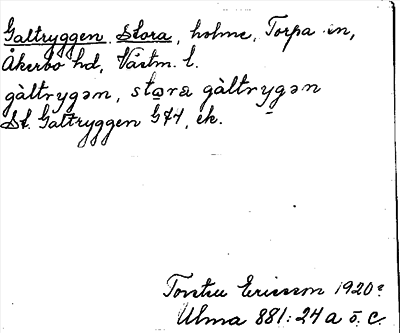 Galtryggen Stora, holme, Torpa sn,
Åkerbo hd, Västm. l.
gàltrygən, stora gàltrygən
St. Galtryggen G74, ek.
Torsten Ericsson 1920
Ulma 881:24 a ö. c.